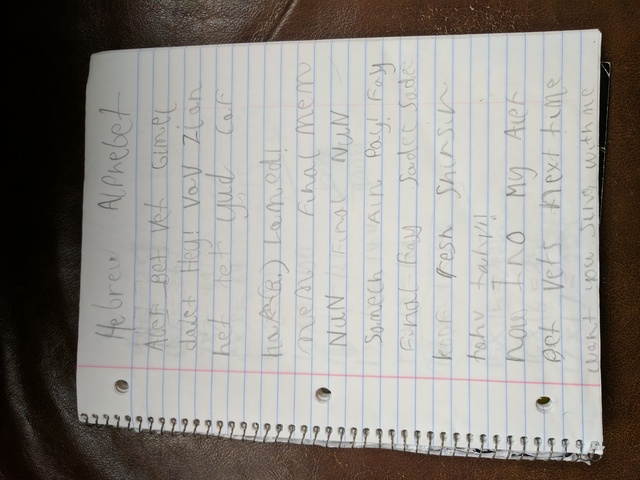 Hebrew Alphebet
Alef Bet Vet Gimel
dalet Hey! Vav Zian
het tet yud Caf
Lamed!
mem Final Mem
NuN Final NuN
Samech Ain Pay! Fay
Final Fay Sadee Sade
resh Shinsin
tahv tahv!!
Now I no My Alef
Bet Vets Next time
wont you sing with me